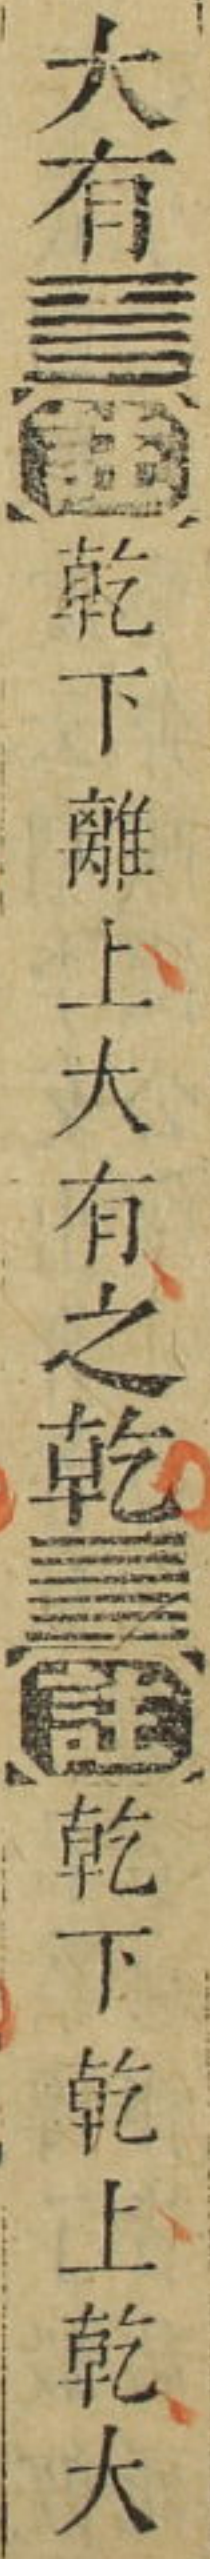 大有䷍乾下離上大有之乾䷀乾下乾上乾大